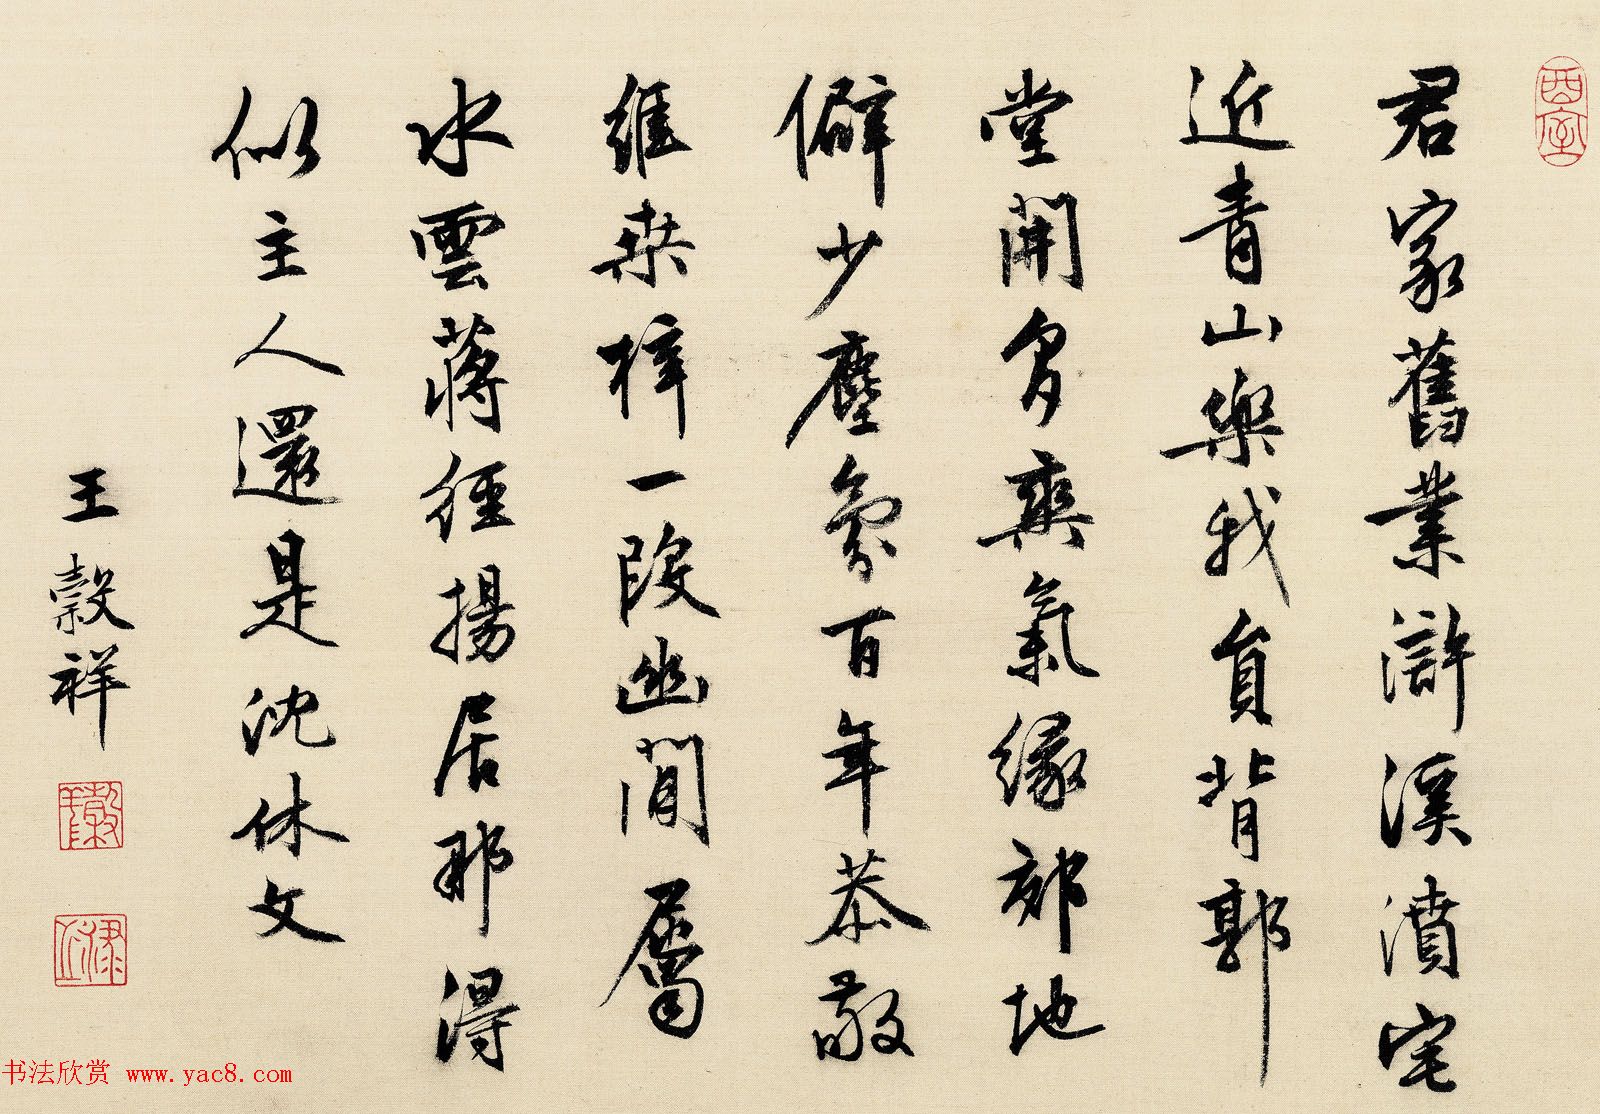 西室
君家舊業滸溪濆宅
近青山樂我員背郭
堂開多爽氣緣郊地
僻少塵氛百年恭敬
維桒梓一段幽閒屬
水雲蔣徑揚居那得
似主人還是沈休文
王榖祥
书法欣赏 www.yac8.com